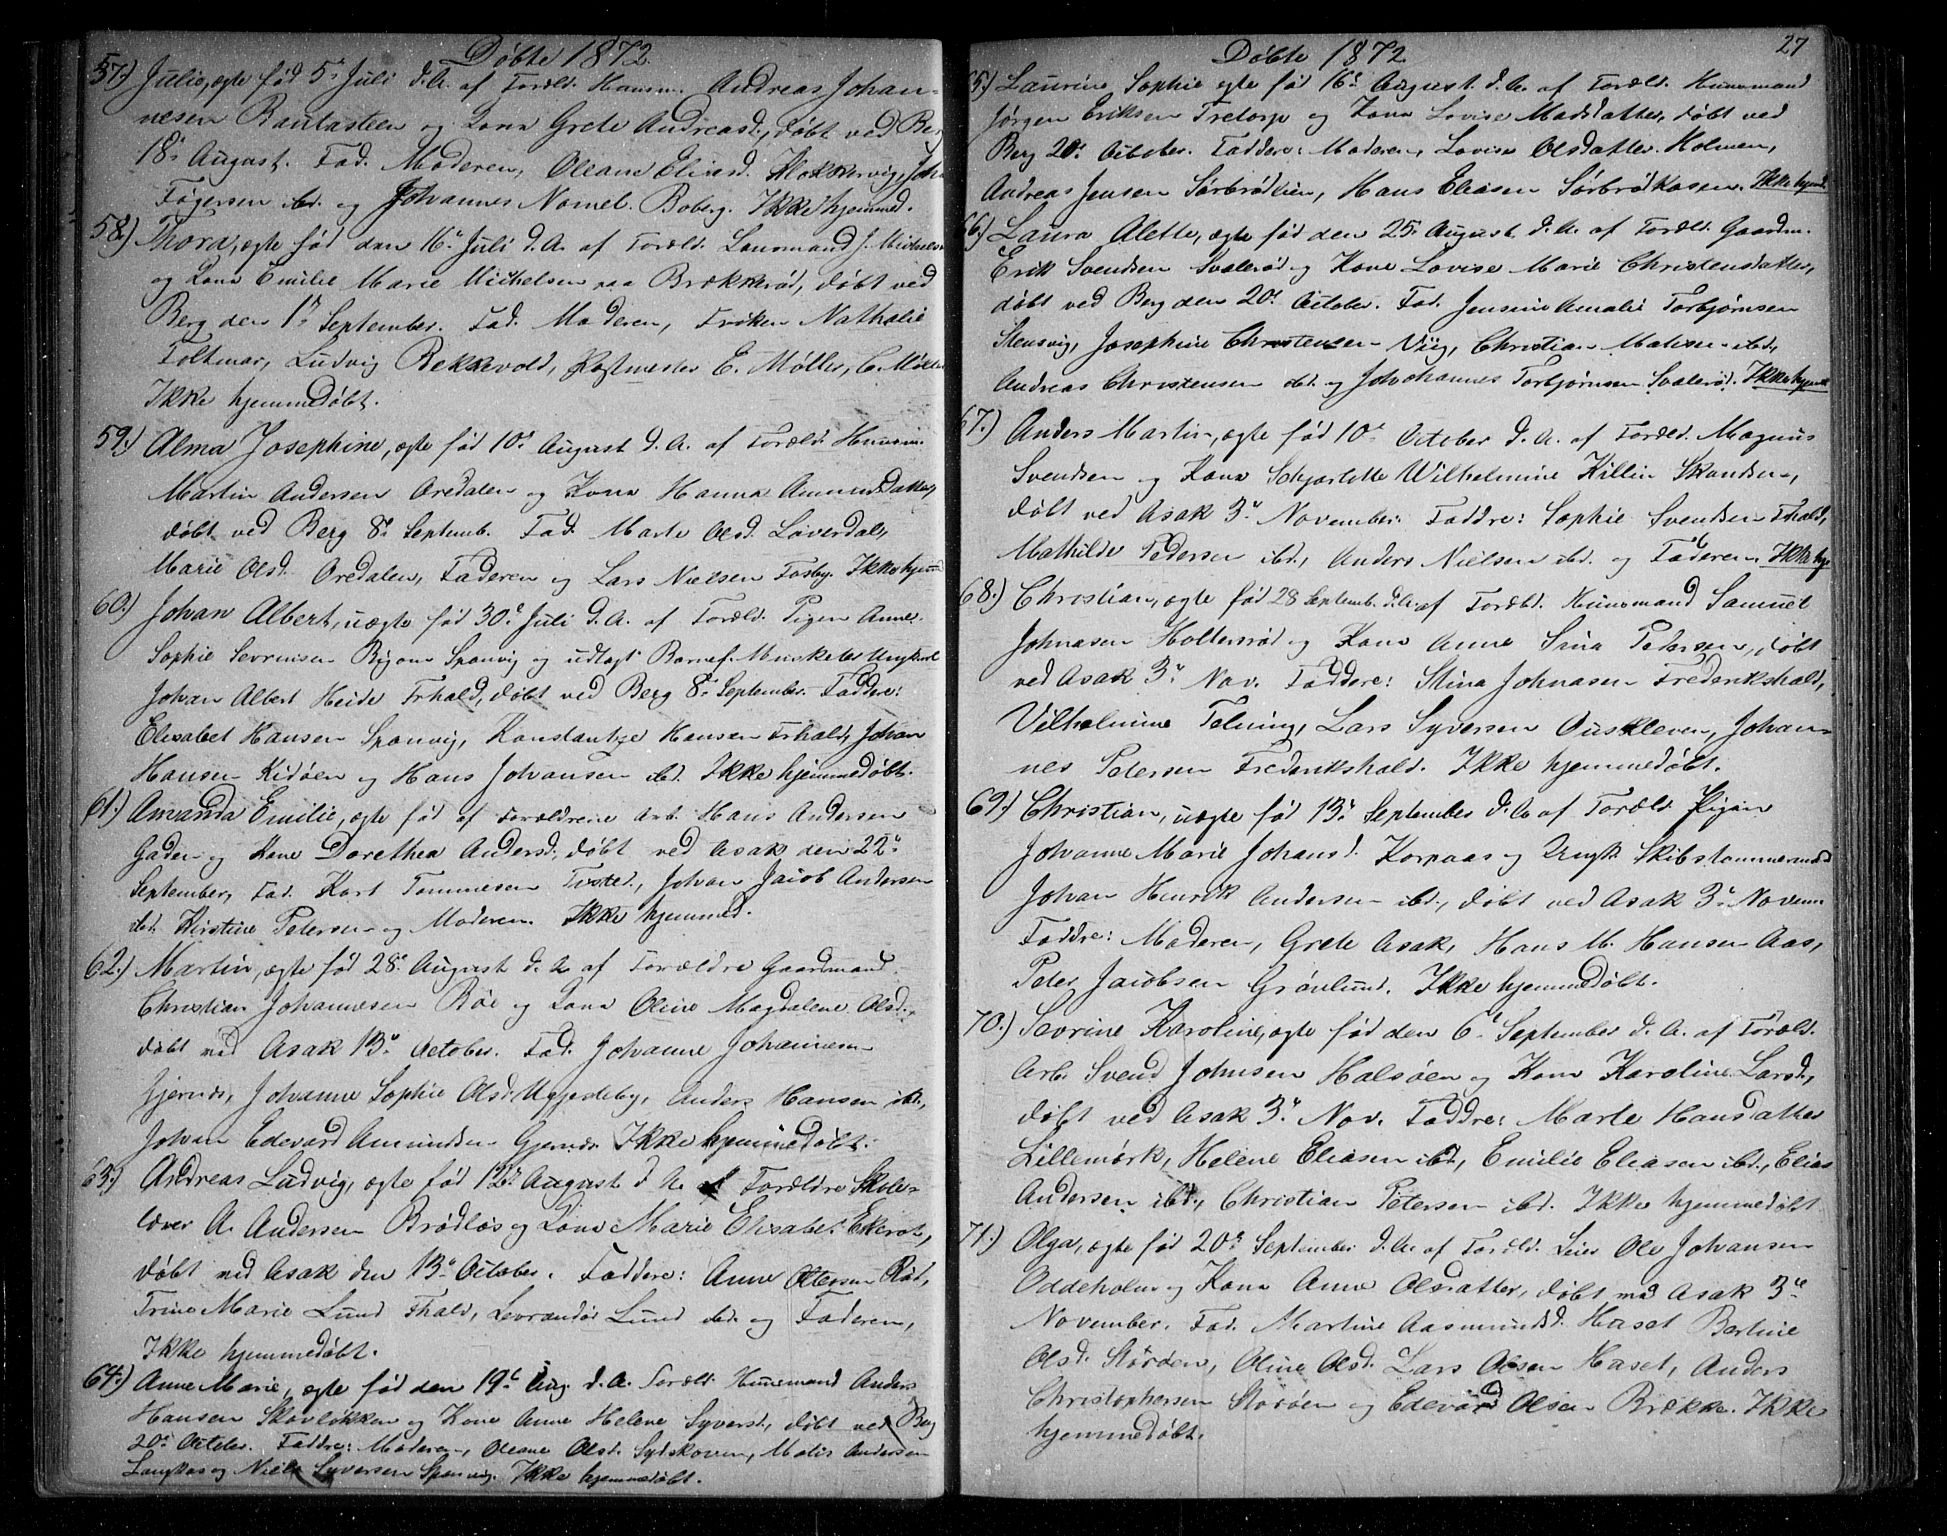 Døbte 1872.
57.) Julie, ægte født 5te Juli d. A. af Foræld. Husm. Andreas Johan-
nesen Bautasteen og Kone Grete Andreasd., døbt ved Berg
18de August. Fad. Moderen, Oleane Eliasd. Klokkervig,
ibd. og Johannes Nomel. Boberg. Ikke hjemmed.
58.) Thora, ægte født den 16de Juli d. A. af Foræld. Lensmand J. Michelsen
og Kone Emilie Marie Michelsen paa Brækkerød, døbt ved
Berg den 1ste September. Fad. Moderen, Frøken Nathalie
Foltmar, Ludvig Bekkevold, Postmester E. Møller, C. Møller
Ikke hjemmedøbt.
59.) Alma Josephine, ægte født 10de August d. A. af Foræld. Husm.
Martin Andersen Oredalen og Kone Hanna Amundsdatter,
døbt ved Berg 8de Septemb. Fad. Marte Olsd. Løverdal,
Marie Olsd. Oredalen, Faderen og Lars Nielsen Fosby. Ikke hjemmd
60.) Johan Albert, uægte født 30te Juli d. A. af Foræld. Pigen Anne
Sophie Sevrinsen Sponvig og udlagt Barnef. Musketer Ungkarl
Johan Albert Heide Frhald, døbt ved Berg 8de September. Faddere:
Elisabet Hansen Sponvig, Konstantse Hansen Frhald, Johan
Hansen Kidøen og Hans Johansen ibd. Ikke hjemmedøbt.
61.) Amanda Emilie, ægte født af Forældrene Arb. Hans Andersen
Gaden og Kone Dorethea Andersd., døbt ved Asak den 22de
September, Fad. Karl Tommesen Tvsted., Johan Jacob Andersen
ibd. Kirstine Petersen og Moderen. Ikke hjemmed.
62.) Martin, ægte født 28de August d. A. af Forældre Gaardmand
Christian Johannesen Røe og Kone Oline Magdalene Olsd.,
døbt ved Asak 13de October. Fad. Johanne Johannesen
Gjernæs, Johanne Sophie Olsd. Uggesdeby, Anders Hansen ibd.,
Johan Edevard Amundsen Gjernæs. Ikke hjemmedøbt.
63.) Andreas Ludvig, ægte født 12te August d. A. af Forældre Skole-
lærer A. Andersen Brødløs og Kone Marie Elisabet Ekerot,
døbt ved Asak den 13de October. Faddere: Anne Ottersen Rød,
Trine Marie Lund Fhald, Levrandør Lund ibd. og Faderen,
Ikke hjemmedøbt.
64.) Anne Marie, ægte født den 19de Aug. d. A. Foræld. Huusmand Anders
Hansen Skovløkken og Kone Anne Helene Syversd., døbt ved Berg
20de October. Faddre: Moderen, Oleane Olsd. Sydskoven, Matis Andersen
Langkas og Niels Syversen Sponvig. Ikke hjemmedøbt.
27
Døbte 1872
65.) Laurine Sophie ægte født 16de August d. A. af Foræld. Huusmand
Jørgen Eriksen Tretorp og Kone Lovise Madsdatter, døbt ved
Berg 20de October. Faddere: Moderen, Lovise Olsdatter Holmen,
Andreas Jensen Sørbrødlien, Hans Eliasen Sørbrødkasen. Ikke hjemd
66.) Laura Alette, ægte født den 25. August d. A. af Foræld. Gaardm.
Erik Svendsen Svalerød og Kone Lovise Marie Christensdatter,
døbt ved Berg den 20de October. Fad. Jensine Amalie Torbjørnsen
Stensvig, Josephine Christensen Viig, Christian Matisen ibd.,
Andreas Christensen ibd. og Johohannes Torbjørnsen Svalerød. Ikke hjemd
67.) Anders Martin, ægte født 10de October d. A. af Foræld. Magnus
Svendsen og Kone Schjarlotte Wilhelmine Killin Skandsen,
døbt ved Asak 3de November. Faddre: Sophie Svendsen Fhald,
Mathilde Pedersen ibd., Anders Nielsen ibd. og Faderen. Ikke hje
68.) Christian, ægte født 28 Septemb. d. A. af Foræld. Huusmand Samuel
Johnasen Holtensrød og Kone Anne Sina Pedersen, døbt
ved Asak 3de Nov. Faddere: Stina Johnasen Frederikshald,
Vilhelmine Tolning, Lars Syversen Ouskleven, Johan-
nes Petersen Frederikshald. Ikke hjemmedøbt.
69.) Christian, uægte født 13de September d. A. af Foræld. Pigen
Johanne Marie Johansd. Korpaas og Ungk. Skibstømmermd
Johan Henrik Andersen ibd., døbt ved Asak 3de Novem
Faddre: Moderen, Grete Asak, Hans M. Hansen Aas,
Peter Jacobsen Grønlund. Ikke hjemmedøbt.
70.) Sevrine Karoline, ægte født den 6te September d. A. af Foræld.
Arb. Svend Johnsen Halsøen og Kone Karoline Larsd.,
døbt ved Asak 3de Nov. Faddre: Marte Hansdatter
Lillemørk, Helene Eliasen ibd., Emilie Eliasen ibd., Elias
Andersen ibd., Christian Petersen ibd. Ikke hjemmedøbt
71.) Olga, ægte født 20de September d. A. af Foræld. Leier Ole Johansen
Oddeholm og Kone Anne Olsdatter, døbt ved Asak 3die
November. Fad. Martine Aasmundsd. Haset Bertine
Olsd. Storøen, Oline Olsd. Lars Olsen Haset, Anders
Christophersen Storøen og Edevard Olsen Brække. Ikke
hjemmedøbt.